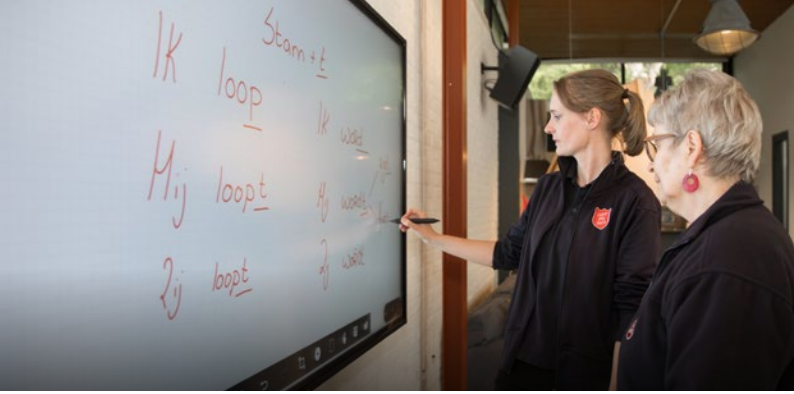 Stam + t
Ik loop
Hij loopt
Zij loopt
Ik word
Hij wordt
Zij wordt